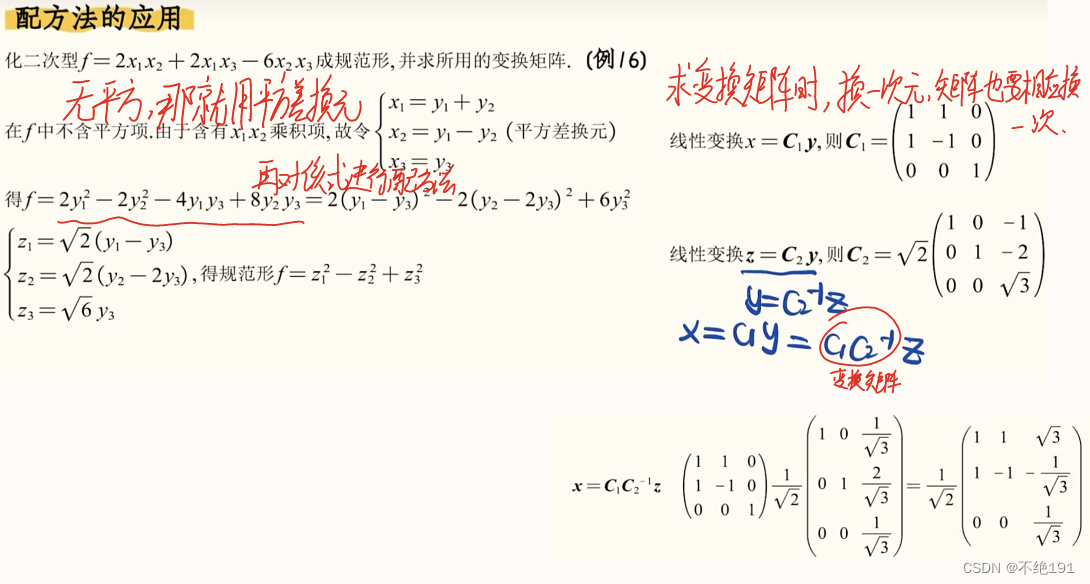 配方法的应用
化二次型f=2x₁x₂+2x₁x₃−6x₂x₃成规范形,并求所用的变换矩阵. (例16)
无平方,那就用平方差换元
在f中不含平方项.由于含有x₁x₂乘积项,故令
x₁=y₁+y₂
x₂=y₁−y₂ (平方差换元)
x₃=y₃
再对该式进行配方法
得f=2y₁²−2y₂²−4y₁y₃+8y₂y₃=2(y₁−y₃)²−2(y₂−2y₃)²+6y₃²
z₁=√2(y₁−y₃)
z₂=√2(y₂−2y₃),得规范形f=z₁²−z₂²+z₃²
z₃=√6 y₃
求变换矩阵时,换一次元,矩阵也要相应换
一次.
线性变换x=C₁y,则C₁=
1 1 0
1 −1 0
0 0 1
线性变换z=C₂y,则C₂=√2
1 0 −1
0 1 −2
0 0 √3
y=C₂⁻¹z
x=C₁y=C₁C₂⁻¹z
变换矩阵
x=C₁C₂⁻¹z
1 1 0
1 −1 0
0 0 1
1/√2
1 0 1/√3
0 1 2/√3
0 0 1/√3
= 1/√2
1 1 √3
1 −1 −1/√3
0 0 1/√3
CSDN @不绝191